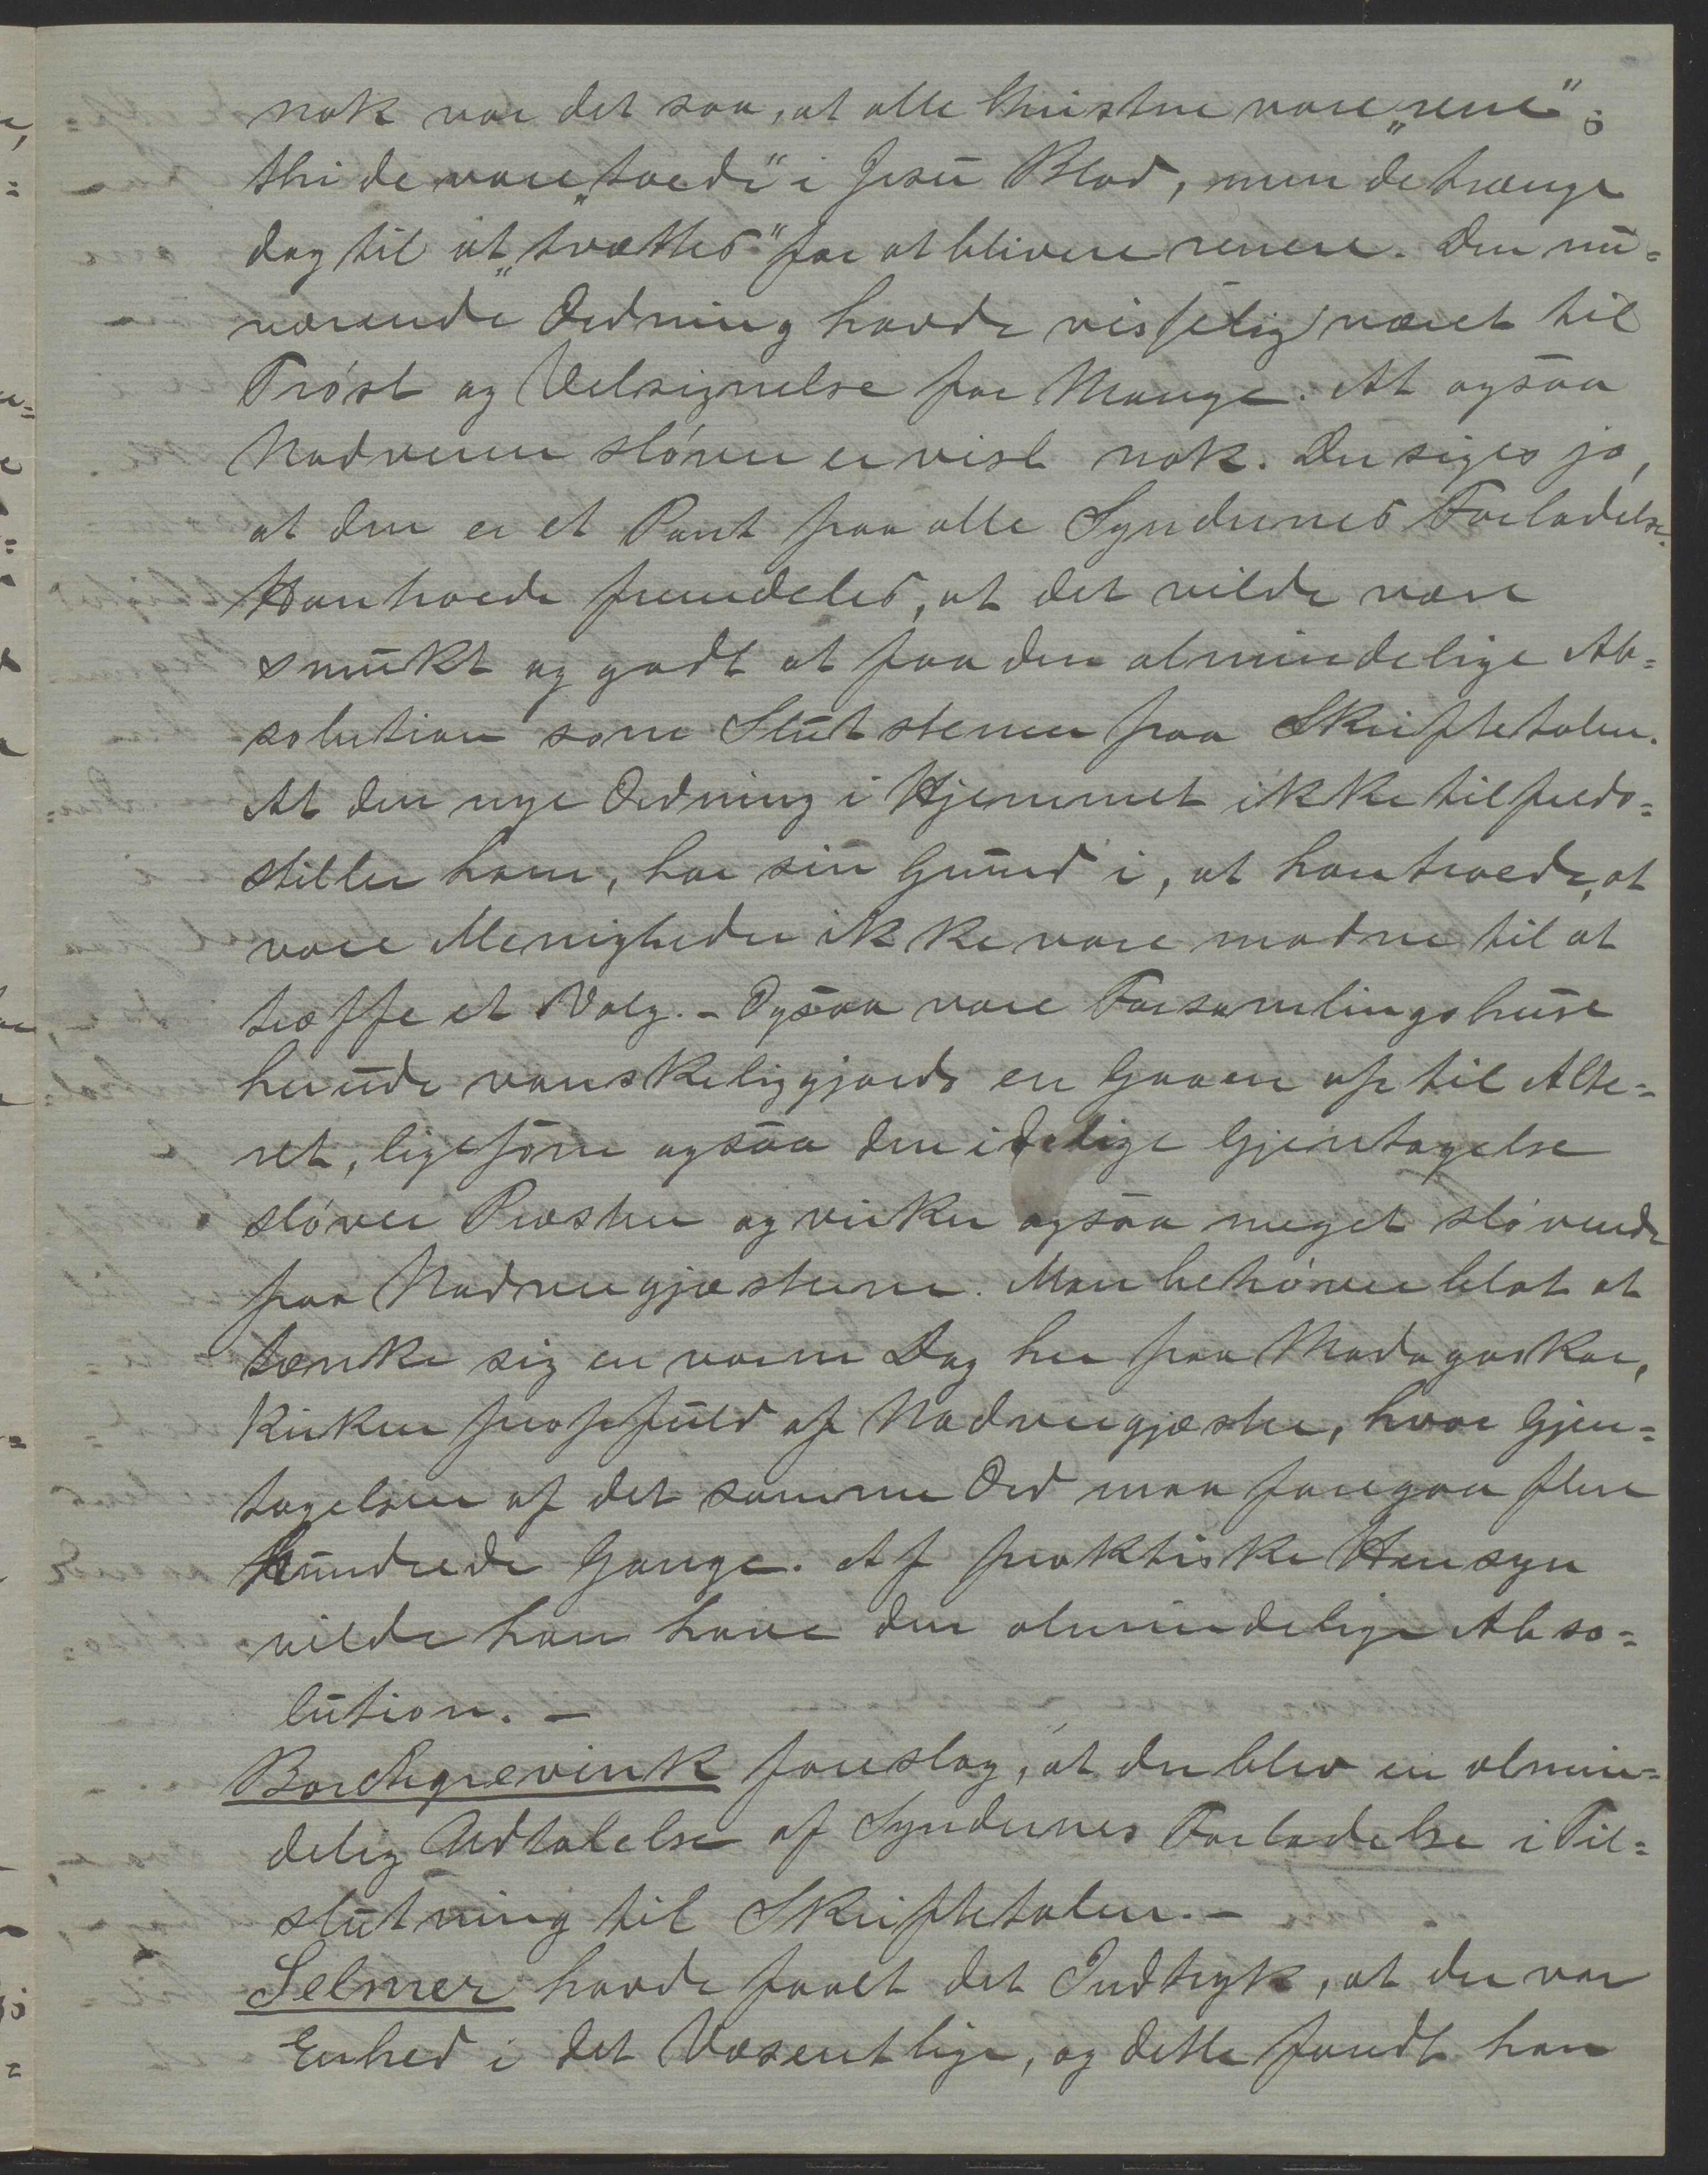 nok var det saa, at alle Christne vare „rene";
thi de vare „toede" i Jesu Blod, men de trænge
dog til at „tvættes" for at blive renere. Den nu=
værende Ordning havde visselig været til
Trøst og Velsignelse for Mange. At ogsaa
Nadveren sløver er vist nok. Der siges jo,
at den er et Pant paa alle Syndernes Forladelse.
Han troede fremdeles, at det vilde være
smukt og godt at faa den almindelige Ab=
solution som Slutstenen paa Skriftetalen.
At den nye Ordning i Hjemmet ikke tilfreds=
stiller ham, har sin Grund i, at han troede, at
vore Menigheder ikke vare modne til at
træffe et Valg. - Ogsaa vore Forsamlingshuse
herude vanskeliggjorde en Gaaen op til Alte=
ret, ligesom ogsaa den idelige Gjentagelse
sløver Præsten og virker ogsaa meget sløvende
paa Nadvergjæsterne. Man behøver blot at
tænke sig en varm Dag her paa Madagaskar,
Kirken propfuld af Nadvergjæster, hvor Gjen=
tagelsen af det samme Ord maa foregaa flere
hundrede Gange. Af praktiske Hensyn
vilde han have den almindelige Abso=
lution. -
Borchgrevink foreslog, at der blev en almin=
delig Udtalelse af Syndernes Forladelse i Til=
slutning til Skriftetalen. -
Selmer havde faaet det Indtryk, at der var
Enhed i det Væsentlige, og dette fandt han